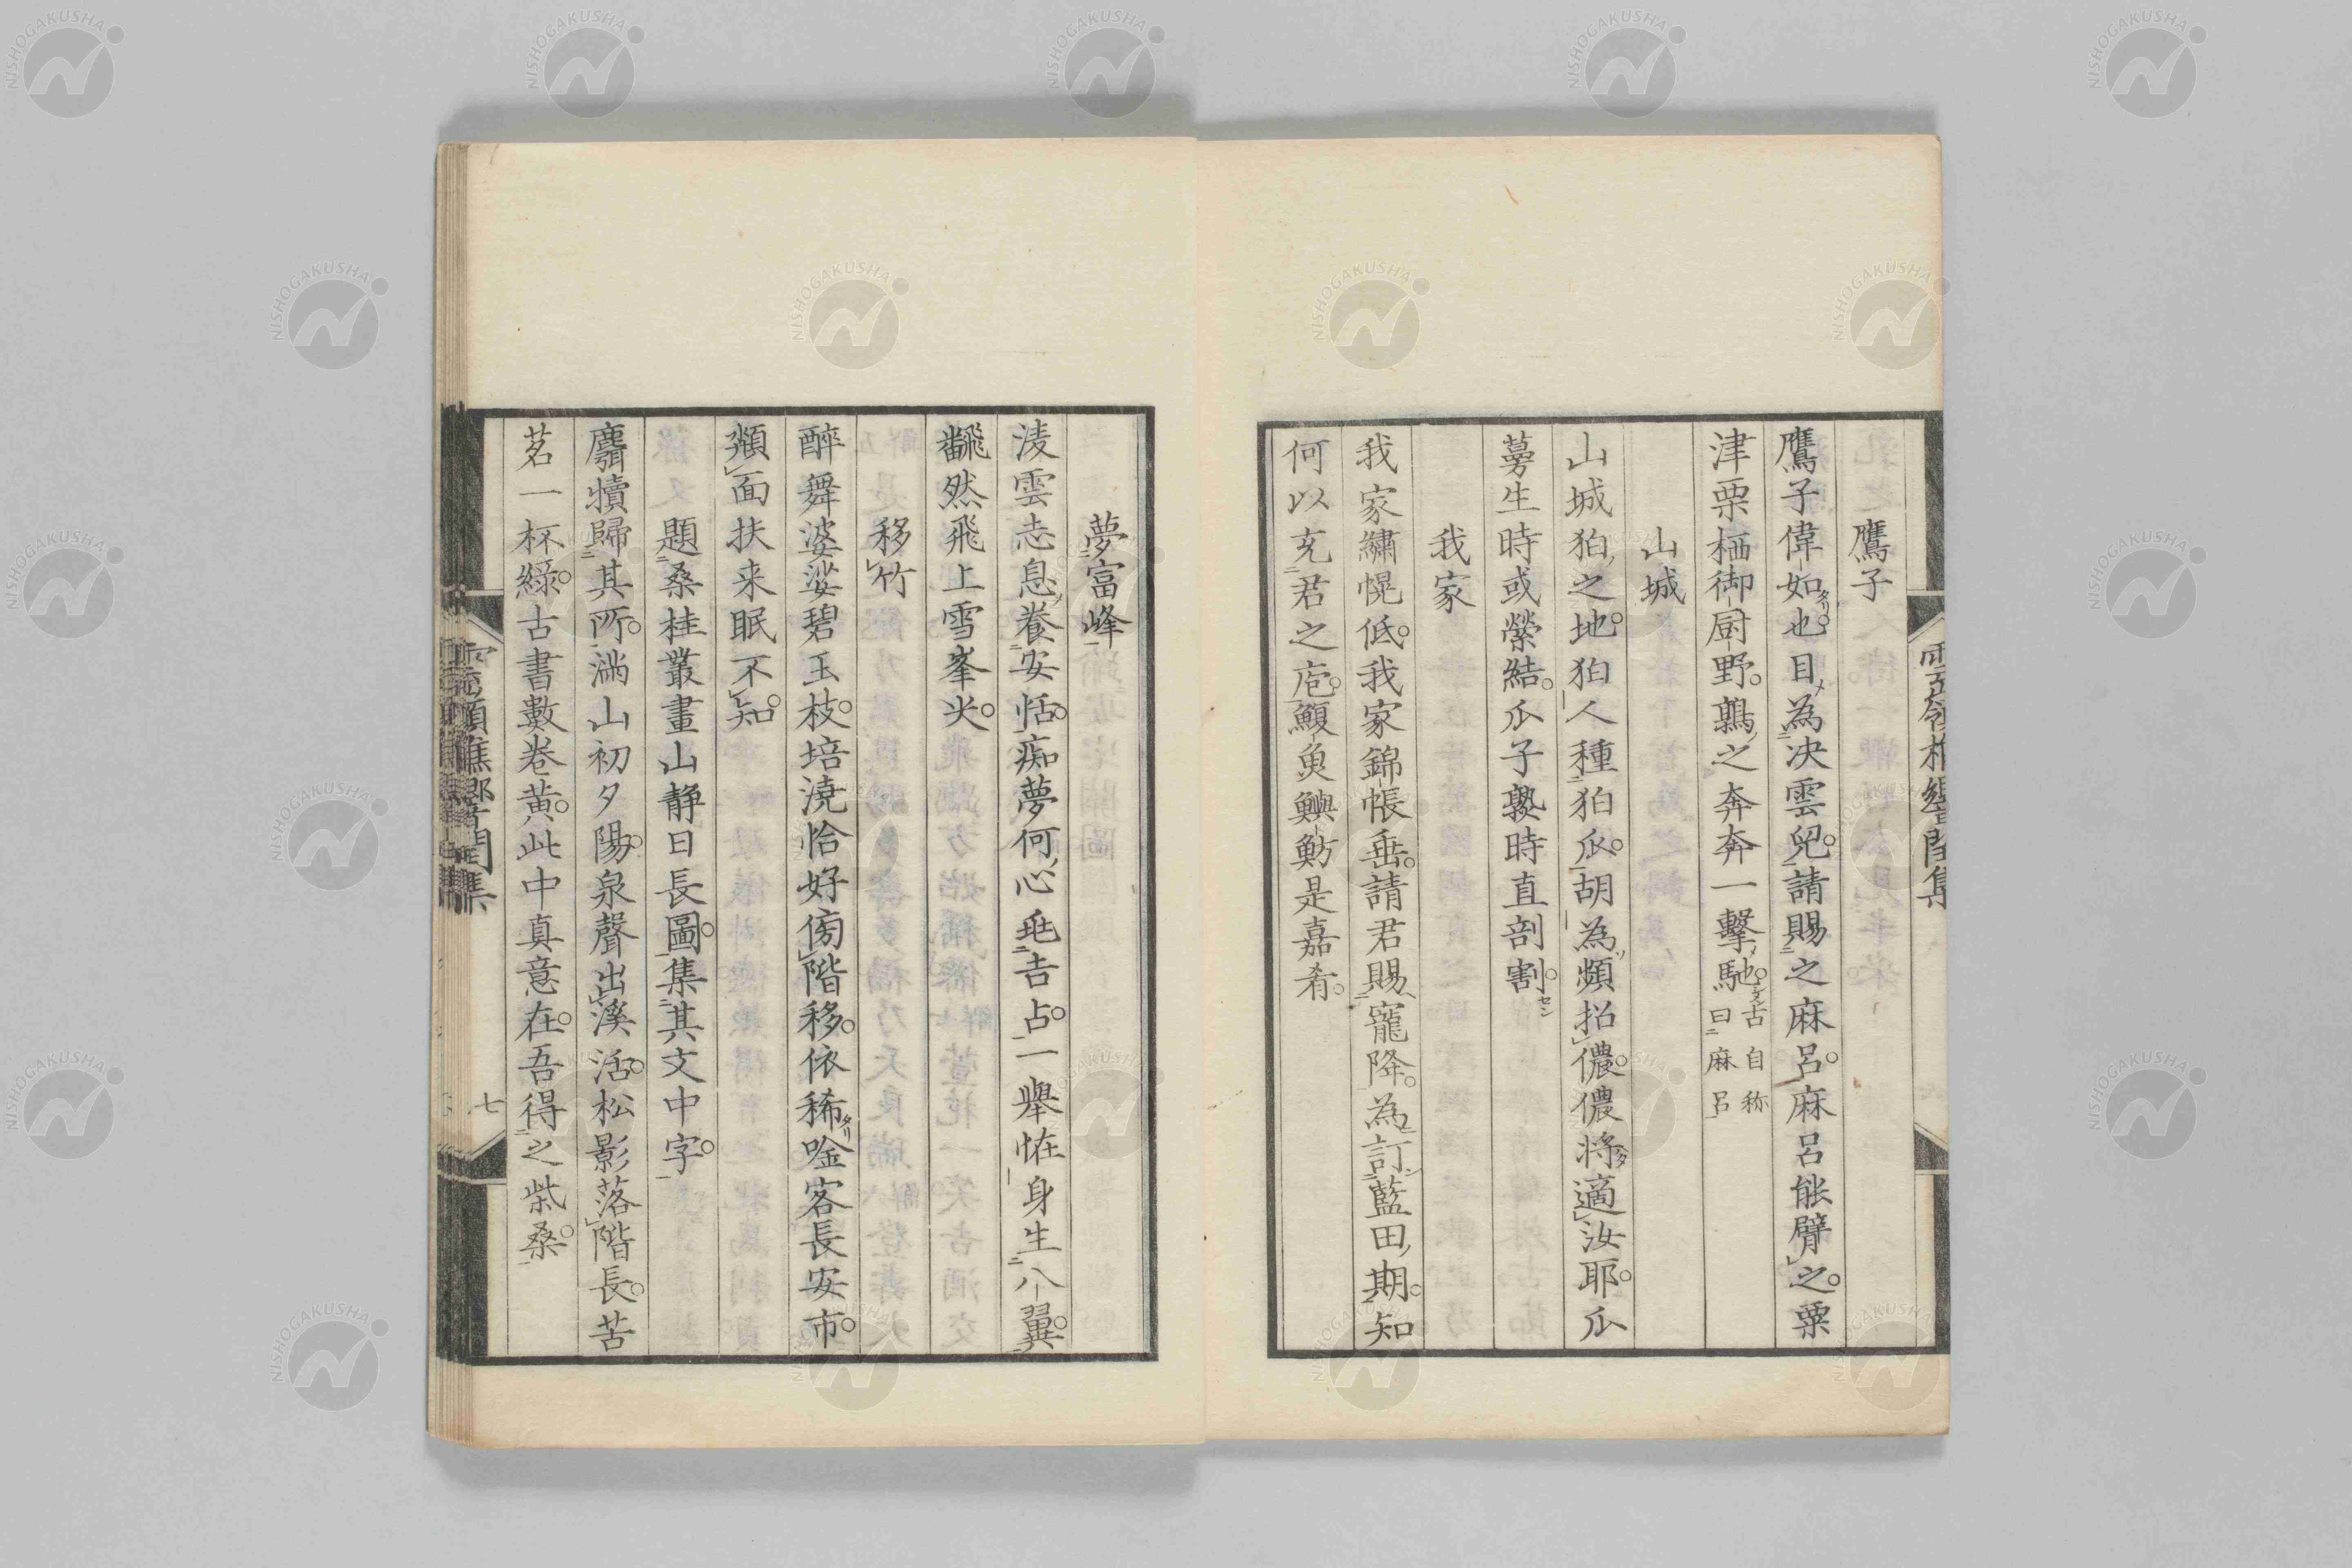 鷹子
鷹子偉如也目為决雲兒請賜之麻呂麻呂能臂之粟
津栗栖御厨野鶉之奔奔一擊馳古自称曰麻呂
山城
山城狛之地狛人種狛瓜胡為頻招儂儂将適汝耶瓜
蔓生時或縈結瓜子熟時直剖割
我家
我家繍幌低我家錦帳垂請君賜寵降為訂藍田期知
何以充君之庖鰒魚鱮魴是嘉肴
夢富峰
淩雲志息養安恬痴夢何心兆吉占一舉恠身生八翼
飜然飛上雪峯尖
移竹
醉舞婆娑碧玉枝培澆恰好傍階移依稀唫客長安市
頽面扶来眠不知
題桑桂叢畫山静日長圖集其文中字
麛犢歸其所滿山初夕陽泉聲出溪活松影落階長苦
茗一杯綠古書數卷黄此中真意在吾得之柴桑
七
NISHOGAKUSHA